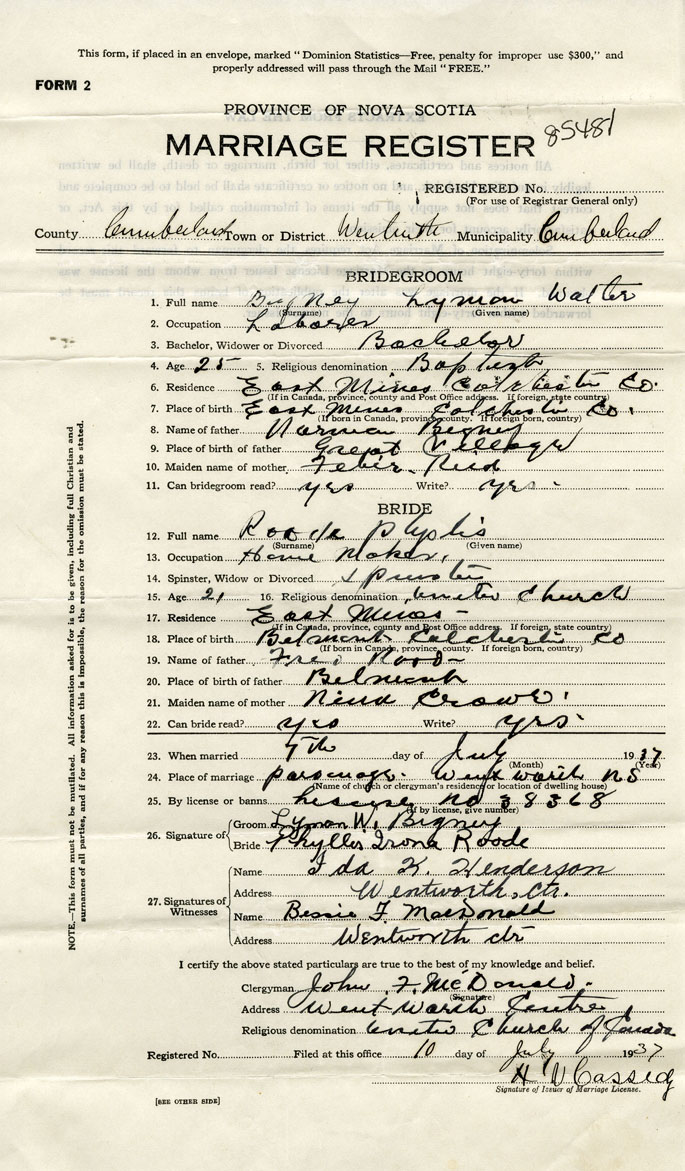 This form, if placed in an envelope, marked "Dominion Statistics—Free, penalty for improper use $300," and
properly addressed will pass through the Mail "FREE."
FORM 2
PROVINCE OF NOVA SCOTIA
MARRIAGE REGISTER 85481
REGISTERED No.
(For use of Registrar General only)
County Cumberland Town or District Wentworth Municipality Cumberland
BRIDEGROOM
1. Full name Bigney Lyman Walter
(Surname) (Given name)
2. Occupation Laborer
3. Bachelor, Widower or Divorced Bachelor
4. Age 25 5. Religious denomination Baptist
6. Residence East Mines Colchester Co.
(If in Canada, province, county and Post Office address. If foreign, state country)
7. Place of birth East Mines Colchester Co.
(If born in Canada, province, county. If foreign born, country)
8. Name of father Norman Bigney
9. Place of birth of father Great Village
10. Maiden name of mother Reid
11. Can bridegroom read? yes Write? yes
BRIDE
12. Full name Roode Phylis
(Surname) (Given name)
13. Occupation Home Maker
14. Spinster, Widow or Divorced Spinster
15. Age 21 16. Religious denomination United Church
17. Residence East Mines
(If in Canada, province, county and Post Office address. If foreign, state country)
18. Place of birth Belmont Colchester Co
(If born in Canada, province, county. If foreign born, country)
19. Name of father Fred Rood
20. Place of birth of father Belmont
21. Maiden name of mother Nina Crowe
22. Can bride read? yes Write? yes
23. When married 7th day of July 1937
(Month) (Year)
24. Place of marriage parsonage. Wentworth NS
(Name of church or clergyman's residence or location of dwelling house)
25. By license or banns License no 38368
(If by license, give number)
26. Signature of Groom Lyman W. Bigney
Bride Phyllis Irona Roode
27. Signatures of Witnesses
Name Ida K. Henderson
Address Wentworth, Ctr.
Name Bessie F. MacDonald
Address Wentworth Ctr
I certify the above stated particulars are true to the best of my knowledge and belief.
Clergyman John F. McDonald.
(Signature)
Address Wentworth Centre
Religious denomination United Church of Canada
Registered No. Filed at this office 10 day of July 1937
H W Cassidy
Signature of Issuer of Marriage License.
[SEE OTHER SIDE]
NOTE.—This form must not be mutilated. All information asked for is to be given, including full Christian and
surnames of all parties, and if for any reason this is impossible, the reason for the omission must be stated.